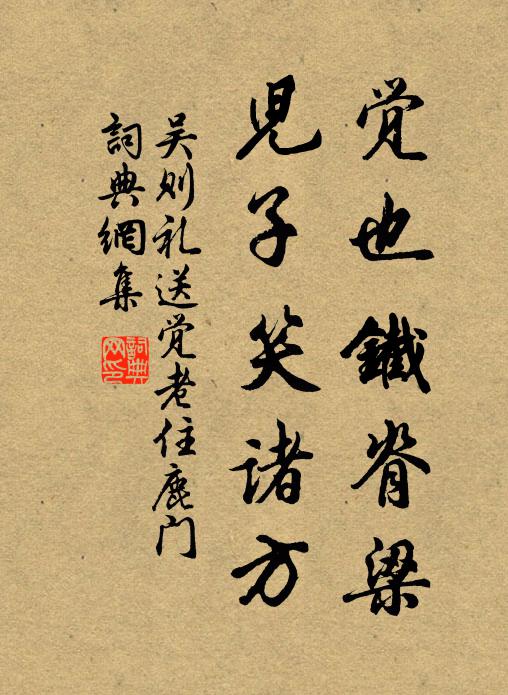 觉也鐵脊梁
児子笑诸方
吴则礼送觉老住鹿门
詞典網集
詞典网印